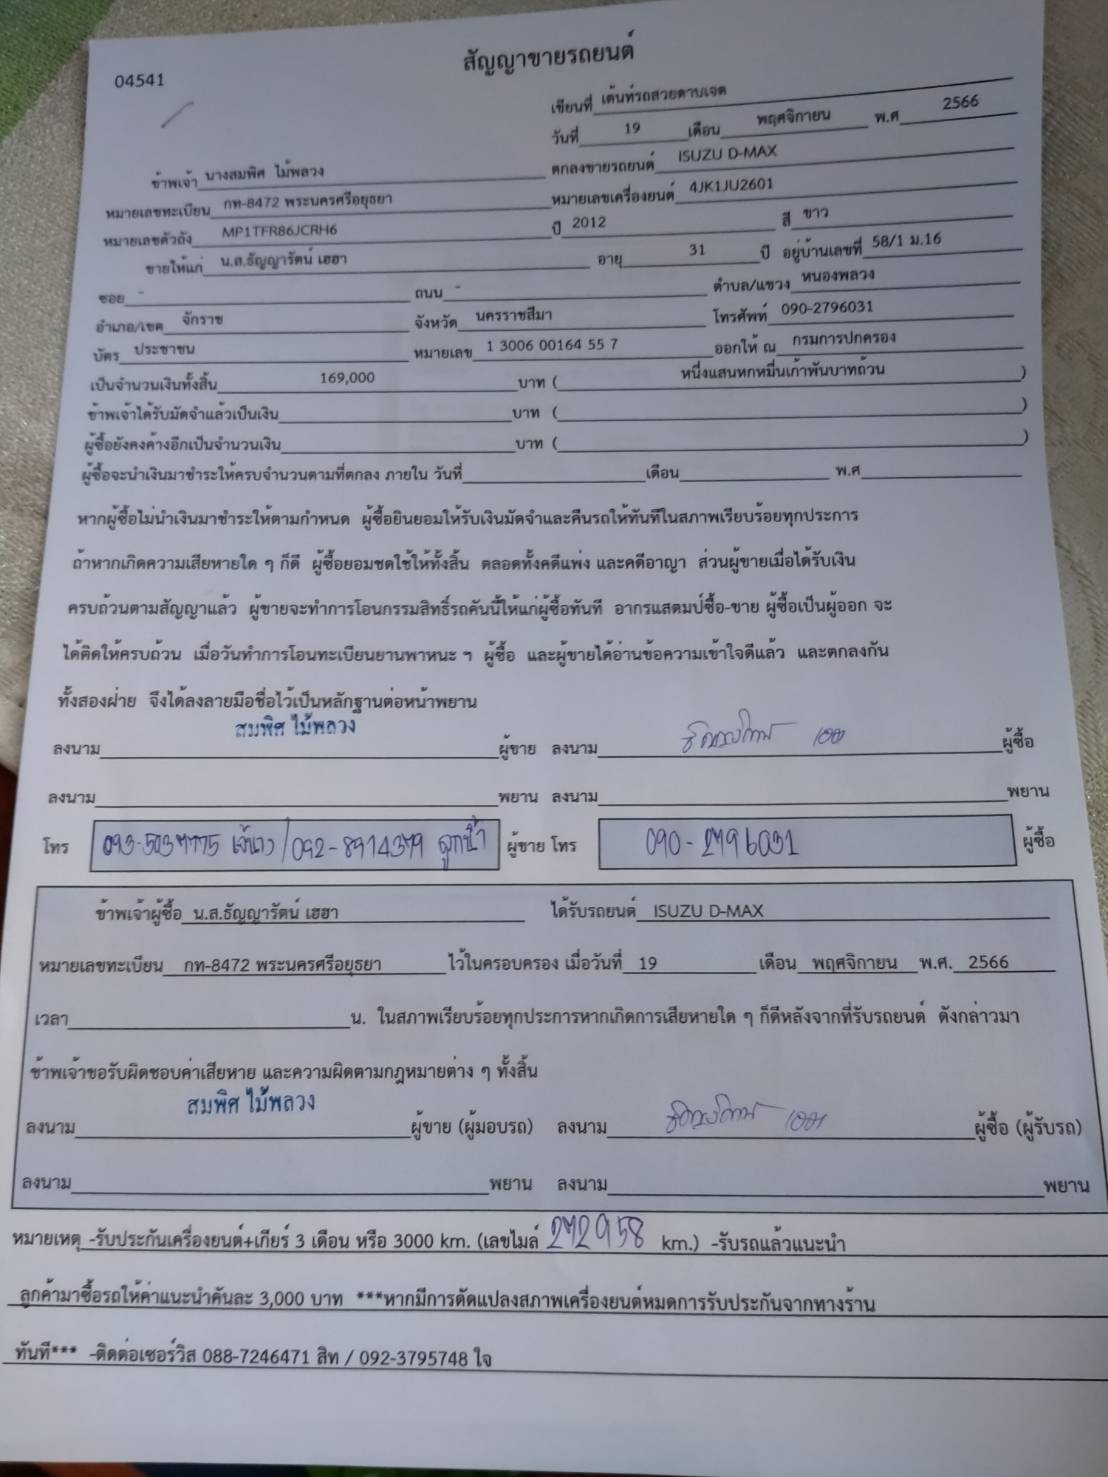 สัญญาขายรถยนต์
04541
เขียนที่ เต็นท์รถสวยดาบเจด
วันที่ 19 เดือน พฤศจิกายน พ.ศ 2566
ข้าพเจ้า นางสมพิศ ไม้พลวง ตกลงขายรถยนต์ ISUZU D-MAX
หมายเลขทะเบียน กท-8472 พระนครศรีอยุธยา หมายเลขเครื่องยนต์ 4JK1JU2601
หมายเลขตัวถัง MP1TFR86JCRH6 ปี 2012 สี ขาว
ขายให้แก่ น.ส.ธัญญารัตน์ เฮฮา อายุ 31 ปี อยู่บ้านเลขที่ 58/1 ม.16
ซอย - ถนน - ตำบล/แขวง หนองพลวง
อำเภอ/เขต จักราช จังหวัด นครราชสีมา โทรศัพท์ 090-2796031
บัตร ประชาชน หมายเลข 1 3006 00164 55 7 ออกให้ ณ กรมการปกครอง
เป็นจำนวนเงินทั้งสิ้น 169,000 บาท ( หนึ่งแสนหกหมื่นเก้าพันบาทถ้วน )
ข้าพเจ้าได้รับมัดจำแล้วเป็นเงิน บาท ( )
ผู้ซื้อยังคงค้างอีกเป็นจำนวนเงิน บาท ( )
ผู้ซื้อจะนำเงินมาชำระให้ครบจำนวนตามที่ตกลง ภายใน วันที่ เดือน พ.ศ
หากผู้ซื้อไม่นำเงินมาชำระให้ตามกำหนด ผู้ซื้อยินยอมให้รับเงินมัดจำและคืนรถให้ทันทีในสภาพเรียบร้อยทุกประการ
ถ้าหากเกิดความเสียหายใด ๆ ก็ดี ผู้ซื้อยอมชดใช้ให้ทั้งสิ้น ตลอดทั้งคดีแพ่ง และคดีอาญา ส่วนผู้ขายเมื่อได้รับเงิน
ครบถ้วนตามสัญญาแล้ว ผู้ขายจะทำการโอนกรรมสิทธิ์รถคันนี้ให้แก่ผู้ซื้อทันที อากรแสตมป์ซื้อ-ขาย ผู้ซื้อเป็นผู้ออก จะ
ได้ติดให้ครบถ้วน เมื่อวันทำการโอนทะเบียนยานพาหนะ ฯ ผู้ซื้อ และผู้ขายได้อ่านข้อความเข้าใจดีแล้ว และตกลงกัน
ทั้งสองฝ่าย จึงได้ลงลายมือชื่อไว้เป็นหลักฐานต่อหน้าพยาน
ลงนาม สมพิศ ไม้พลวง ผู้ขาย ลงนาม ผู้ซื้อ
ลงนาม พยาน ลงนาม พยาน
โทร 093-5037775 เจ๊นาง / 092-8914379 ลูกน้ำ ผู้ขาย โทร 090-2796031 ผู้ซื้อ
ข้าพเจ้าผู้ซื้อ น.ส.ธัญญารัตน์ เฮฮา ได้รับรถยนต์ ISUZU D-MAX
หมายเลขทะเบียน กท-8472 พระนครศรีอยุธยา ไว้ในครอบครอง เมื่อวันที่ 19 เดือน พฤศจิกายน พ.ศ. 2566
เวลา น. ในสภาพเรียบร้อยทุกประการหากเกิดการเสียหายใด ๆ ก็ดีหลังจากที่รับรถยนต์ ดังกล่าวมา
ข้าพเจ้าขอรับผิดชอบค่าเสียหาย และความผิดตามกฎหมายต่าง ๆ ทั้งสิ้น
ลงนาม สมพิศ ไม้พลวง ผู้ขาย (ผู้มอบรถ) ลงนาม ผู้ซื้อ (ผู้รับรถ)
ลงนาม พยาน ลงนาม พยาน
หมายเหตุ -รับประกันเครื่องยนต์+เกียร์ 3 เดือน หรือ 3000 km. (เลขไมล์ 272958 km.) -รับรถแล้วแนะนำ
ลูกค้ามาซื้อรถให้ค่าแนะนำคันละ 3,000 บาท ***หากมีการดัดแปลงสภาพเครื่องยนต์หมดการรับประกันจากทางร้าน
ทันที*** -ติดต่อเซอร์วิส 088-7246471 สิท / 092-3795748 ใจ